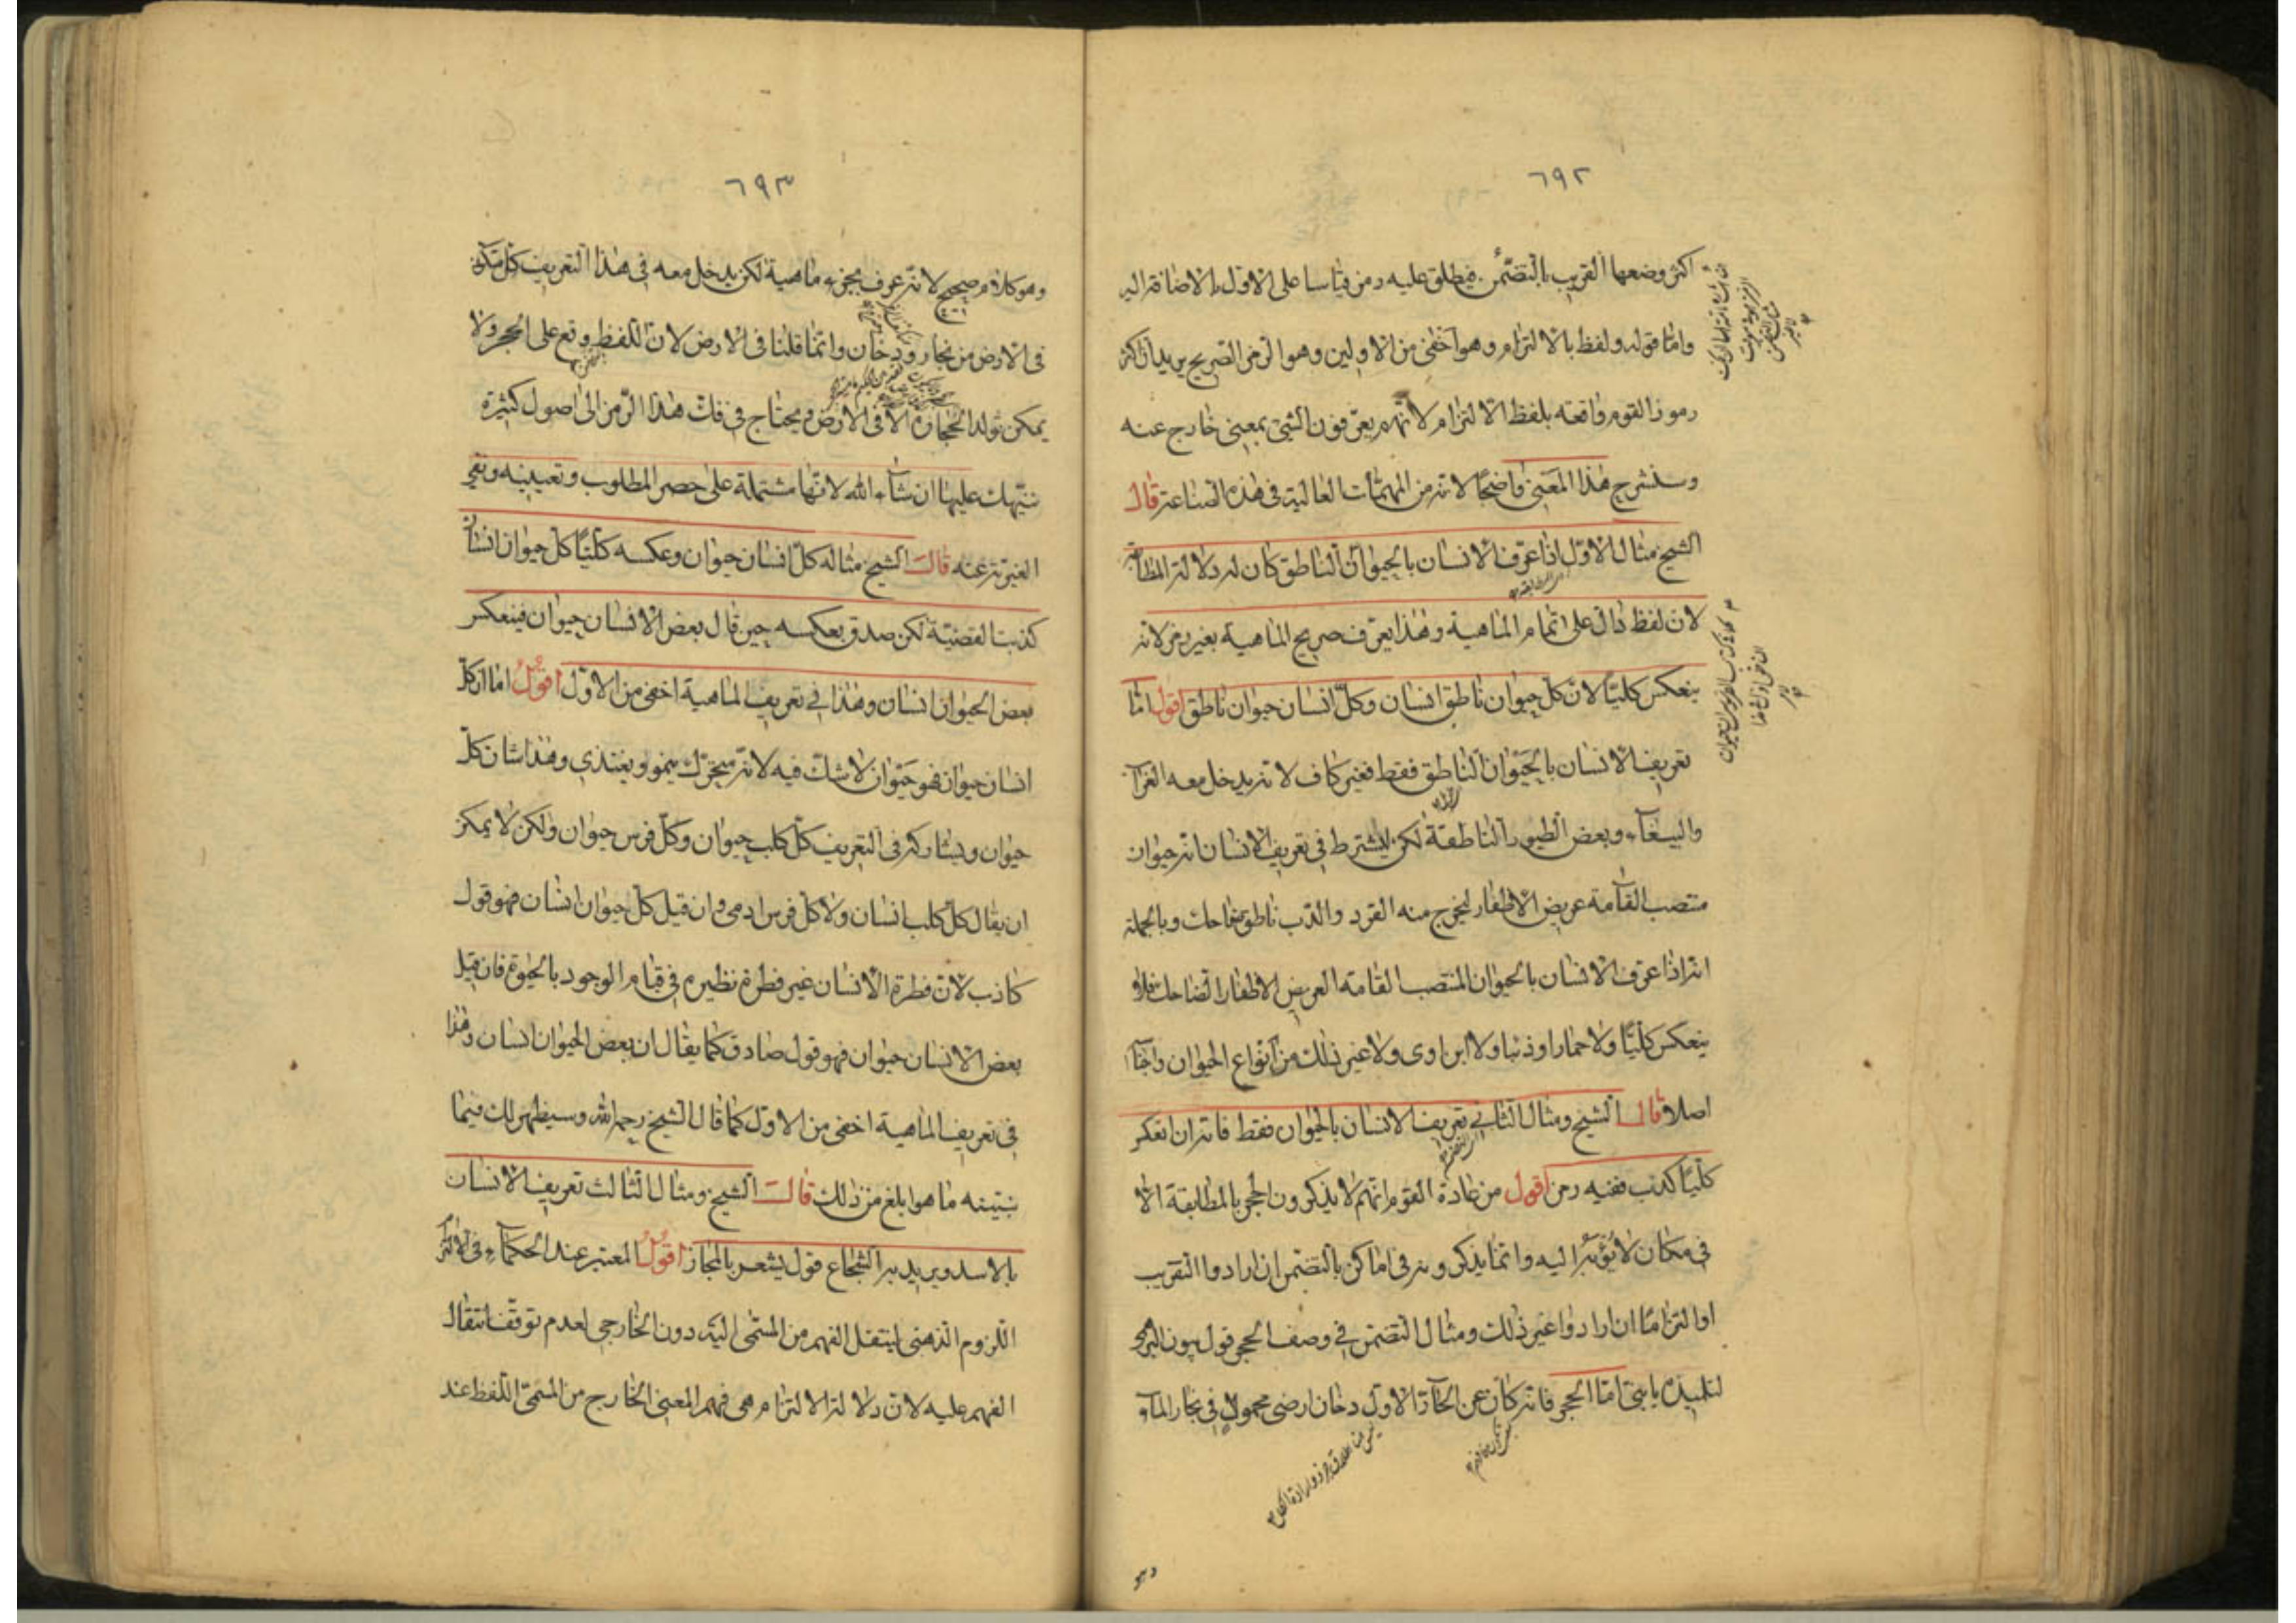 ٦٩٢
اكثر وضعها القريب بالتضمن فيطلق عليه رمز قياسا على الاول بالاضافة اليه
واما قوله ولفظ بالالتزام وهو اخفى من الاولين وهو الرمز الصريح يريد ان اكثر
رموز القوم واقعة بلفظ الالتزام لانهم يعرفون الشئ بمعنى خارج عنه
وسنشرح هذا المعنى واضحا لانه من المهمات العالية في هذه الصناعة قال
الشيخ مثال الاول اذا عرف الانسان بالحيوان الناطق كان له دلالة المطابقة
لان لفظ دال على تمام الماهية وهذا يعرف صريح الماهية بغير رمز لانه
ينعكس كليا لان كل حيوان ناطق انسان وكل انسان حيوان ناطق اقول اما
تعريف الانسان بالحيوان الناطق فقط فغير كاف لانه يدخل معه
والببغاء وبعض الطيور الناطقة لكن يشترط في تعريف الانسان انه حيوان
منتصب القامة عريض الاظفار ليخرج منه القرد والدب ناطق ضاحك وبالجملة
انه اذا عرف الانسان بالحيوان المنتصب القامة العريض الاظفار الضاحك
ينعكس كليا ولا حمارا وذئبا ولا ابن اوى ولا غير ذلك من انواع الحيوان
اصلا قال الشيخ ومثال الثاني تعريف الانسان بالحيوان فقط فانه ان انعكس
كليا كذب ففيه رمز اقول من عادة القوم انهم لا يذكرون الحجر بالمطابقة الا
في مكان لا يؤبه اليه وانما يذكرونه في اماكن بالتضمن ان ارادوا التقريب
او التزاما ان ارادوا غير ذلك ومثال التضمن في وصف الحجر قول
لتلميذه يا بني اما الحجر فانه كان عن الاول دخان ارضي محمول في بخار الماء
وهو
٦٩٣
وهو كلام صحيح لانه عرف بجزء ماهية لكن يدخل معه في هذا التعريف كل
في الارض من بخار ودخان وانما قلنا في الارض لان اللفظ وقع على الحجر ولا
يمكن تولد الحجارة الا في الارض ويحتاج في فك هذا الرمز الى اصول كثيرة
ننبهك عليها ان شاء الله لانها مشتملة على حصر المطلوب وتعيينه ونفي
الغيرية عنه قال الشيخ مثاله كل انسان حيوان وعكسه كليا كل حيوان انسان
كذبت القضية لكن صدق بعكسه حين قال بعض الانسان حيوان فينعكس
بعض الحيوان انسان وهذا في تعريف الماهية اخفى من الاول اقول اما ان كل
انسان حيوان فهو حيوان لا شك فيه لانه متحرك ينمو ويغتذي وهذا شان كل
حيوان ويشاركه في التعريف كل كلب حيوان وكل فرس حيوان ولكن لا يمكن
ان يقال كل كلب انسان ولا كل فرس ادمي وان قيل كل حيوان انسان فهو قول
كاذب لان فطرة الانسان غير فطرة نظيره في قيام الوجود بالحيوة فان قيل
بعض الانسان حيوان فهو قول صادق كما يقال ان بعض الحيوان انسان وهذا
في تعريف الماهية اخفى من الاول كما قال الشيخ رحمه الله وسيظهر لك فيما
نبينه ما هو ابلغ من ذلك قال الشيخ ومثال الثالث تعريف الانسان
بالاسد ويريد به الشجاع قول يشعر بالمجاز اقول المعتبر عند الحكماء في الالتزام
اللزوم الذهني لينتقل الفهم من المسمى اليه دون الخارجي لعدم توقف انتقال
الفهم عليه لان دلالة الالتزام هي فهم المعنى الخارج من المسمى اللفظ عند